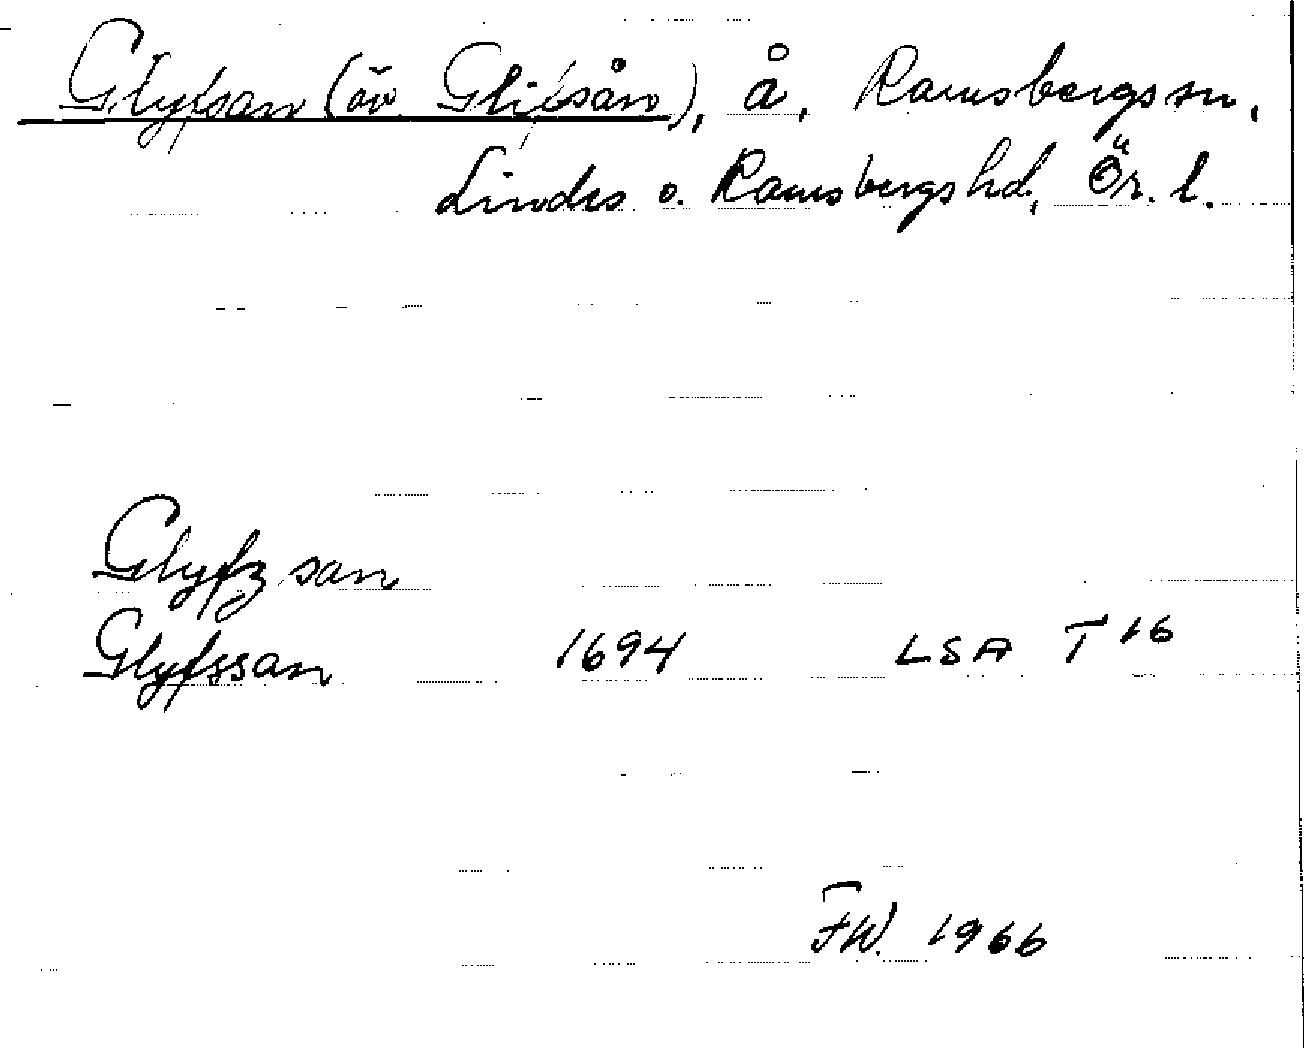 Glyfsan (äv. Glifsån), å, Ramsbergs sn,
Lindes o. Ramsbergs hd, Ör. l.
Glyfz san
Glyfssan 1694 LSA T 16
FW. 1966